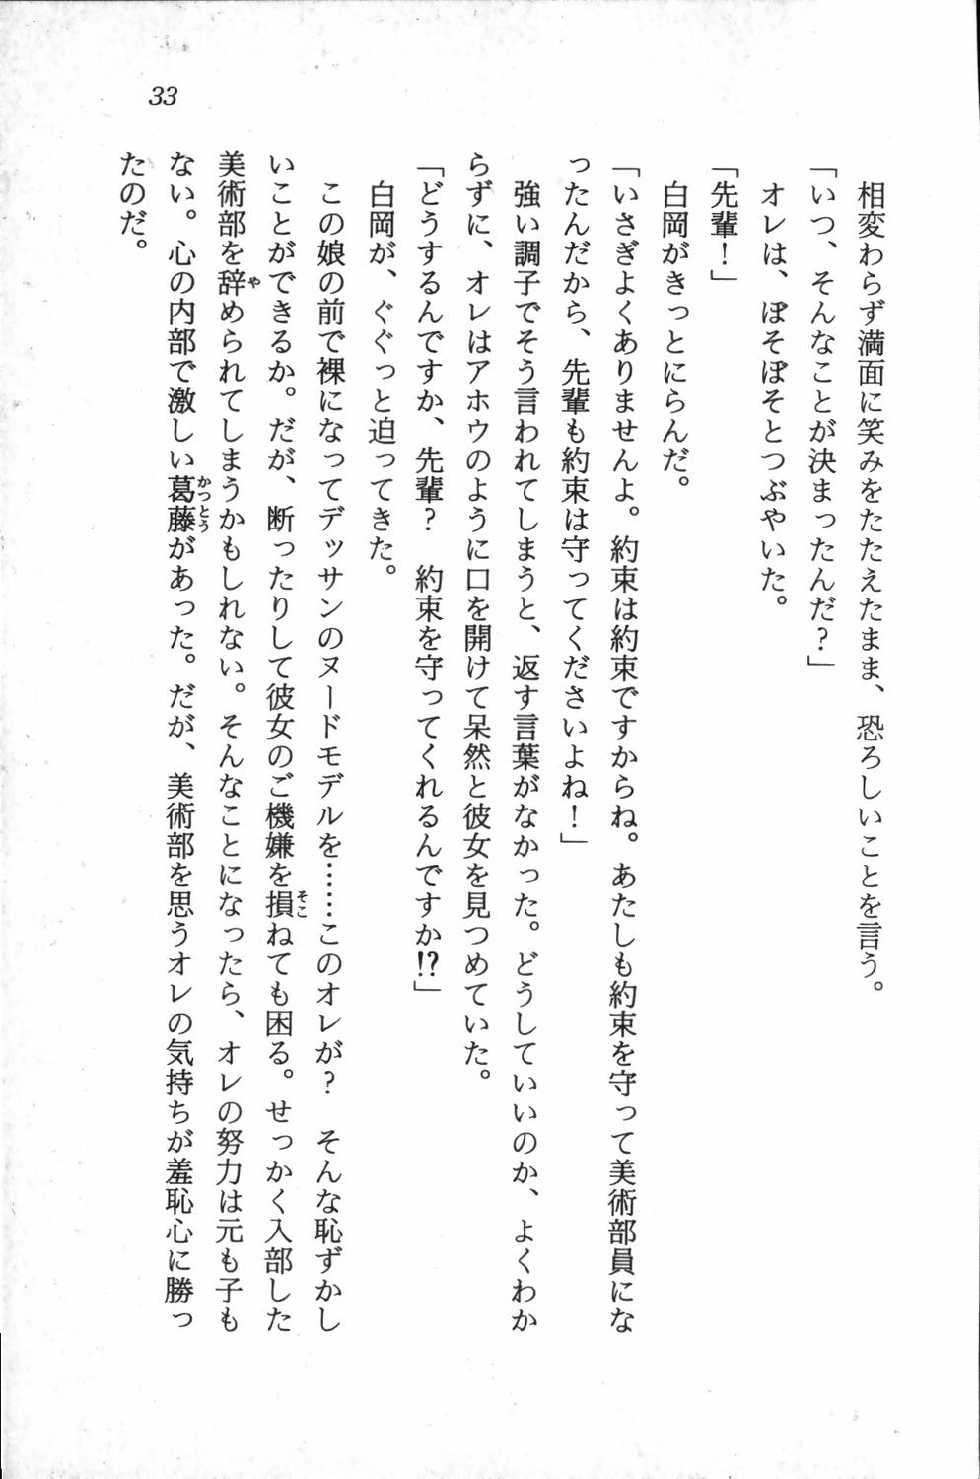 33
相変わらず満面に笑みをたたえたまま、恐ろしいことを言う。
「いつ、そんなことが決まったんだ?」
オレは、ぼそぼそとつぶやいた。
「先輩!」
白岡がきっとにらんだ。
「いさぎよくありませんよ。約束は約束ですからね。あたしも約束を守って美術部員にな
ったんだから、先輩も約束は守ってくださいよね!」
強い調子でそう言われてしまうと、返す言葉がなかった。どうしていいのか、よくわか
らずに、オレはアホウのように口を開けて呆然と彼女を見つめていた。
「どうするんですか、先輩? 約束を守ってくれるんですか!?」
白岡が、ぐぐっと迫ってきた。
この娘の前で裸になってデッサンのヌードモデルを……このオレが? そんな恥ずかし
いことができるか。だが、断ったりして彼女のご機嫌を損ねても困る。せっかく入部した
美術部を辞められてしまうかもしれない。そんなことになったら、オレの努力は元も子も
ない。心の内部で激しい葛藤があった。だが、美術部を思うオレの気持ちが羞恥心に勝っ
たのだ。
そこ
や
かっとう